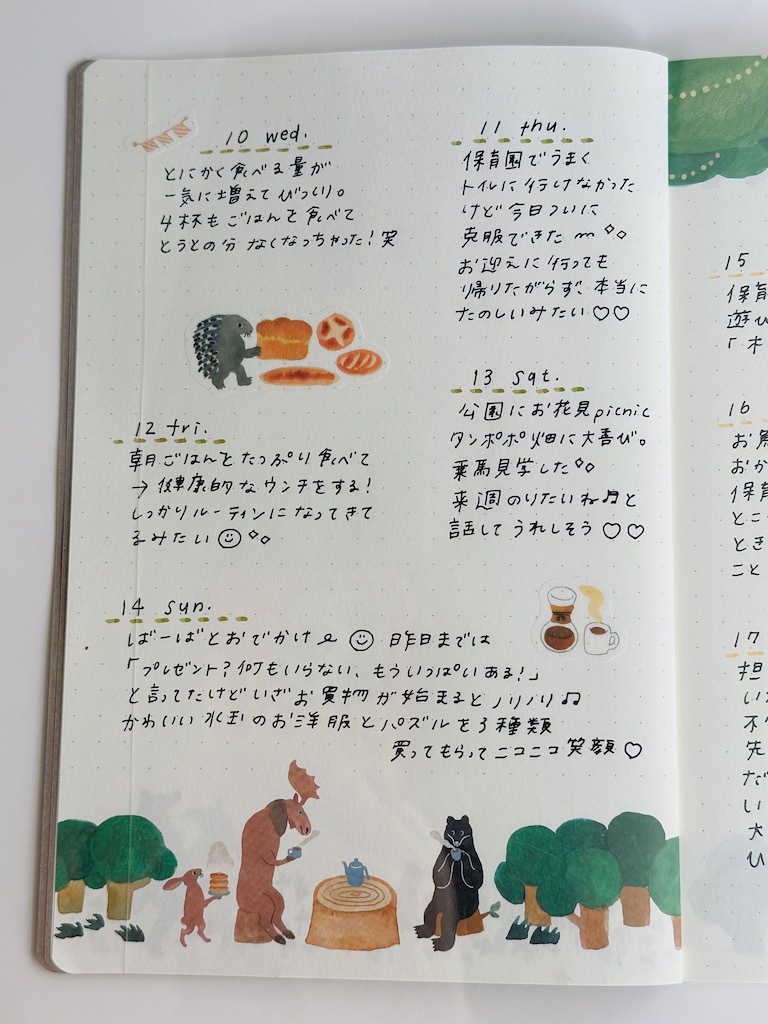 10 wed.
とにかく食べる量が
一気に増えてびっくり。
4杯もごはんを食べて
とうとの分なくなっちゃった！笑
11 thu.
保育園でうまく
トイレに行けなかった
けど今日ついに
克服できた
お迎えに行っても
帰りたがらず、本当に
たのしいみたい♡♡
12 fri.
朝ごはんをたっぷり食べて
→健康的なウンチをする！
しっかりルーティンになってきて
るみたい☺
13 sat.
公園にお花見picnic
タンポポ畑に大喜び。
乗馬見学した
来週のりたいね♬と
話してうれしそう♡♡
14 sun.
ばーばとおでかけ ☺ 昨日までは
「プレゼント？何もいらない、もういっぱいある！」
と言ってたけどいざお買物が始まるとノリノリ♫
かわいい水玉のお洋服とパズルを3種類
買ってもらってニコニコ笑顔♡
15
保育
遊び
「木
16
お
おか
保育
とこ
とき
こと
17
担
い
不
先
だ
い
大
ひ